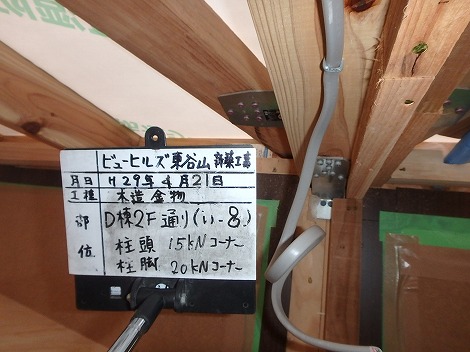 ビューヒルズ東谷山 新築工事
月日 H29年4月21日
工種 木造金物
部位 D棟2F通り(い-8)
柱頭 15kNコーナー
柱脚 20kNコーナー